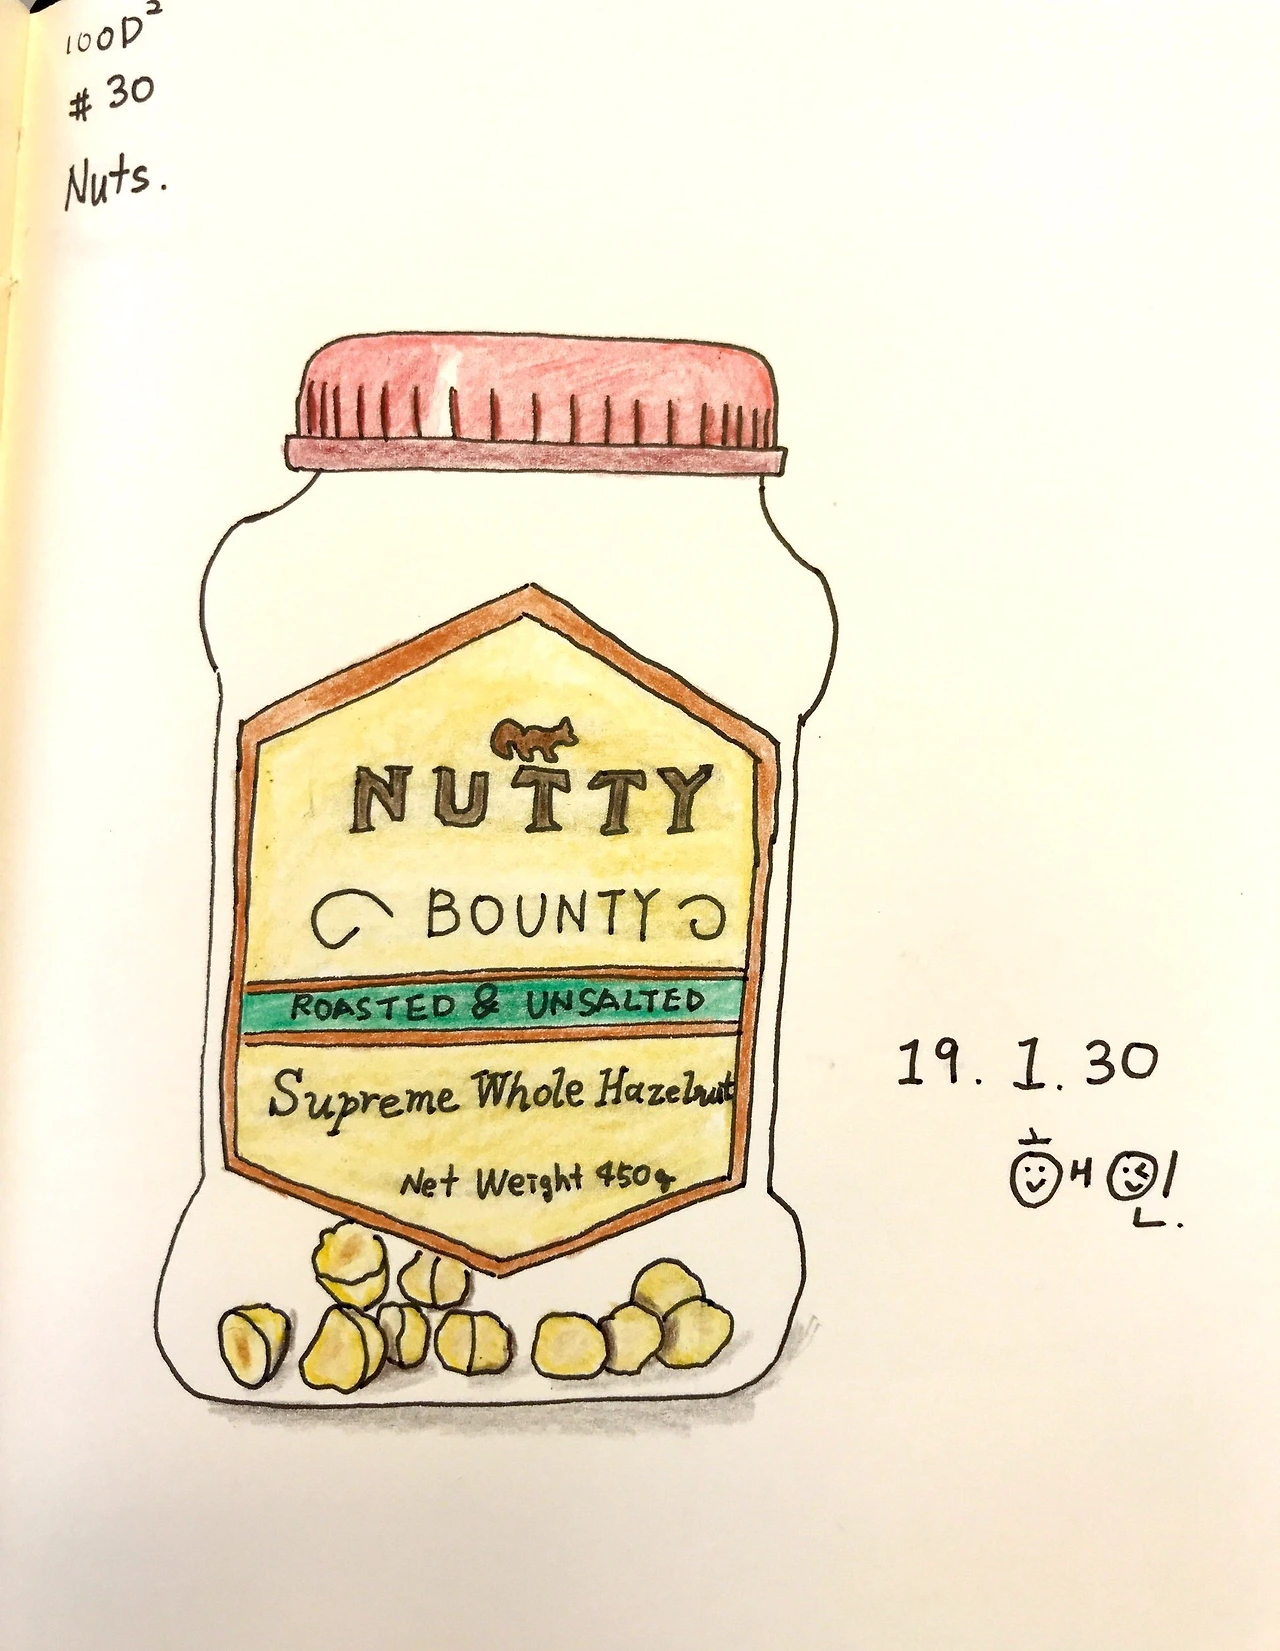 100D²
# 30
Nuts.
NUTTY
BOUNTY
ROASTED & UNSALTED
Supreme Whole Hazelnut
Net Weight 450g
19. 1. 30
해인.